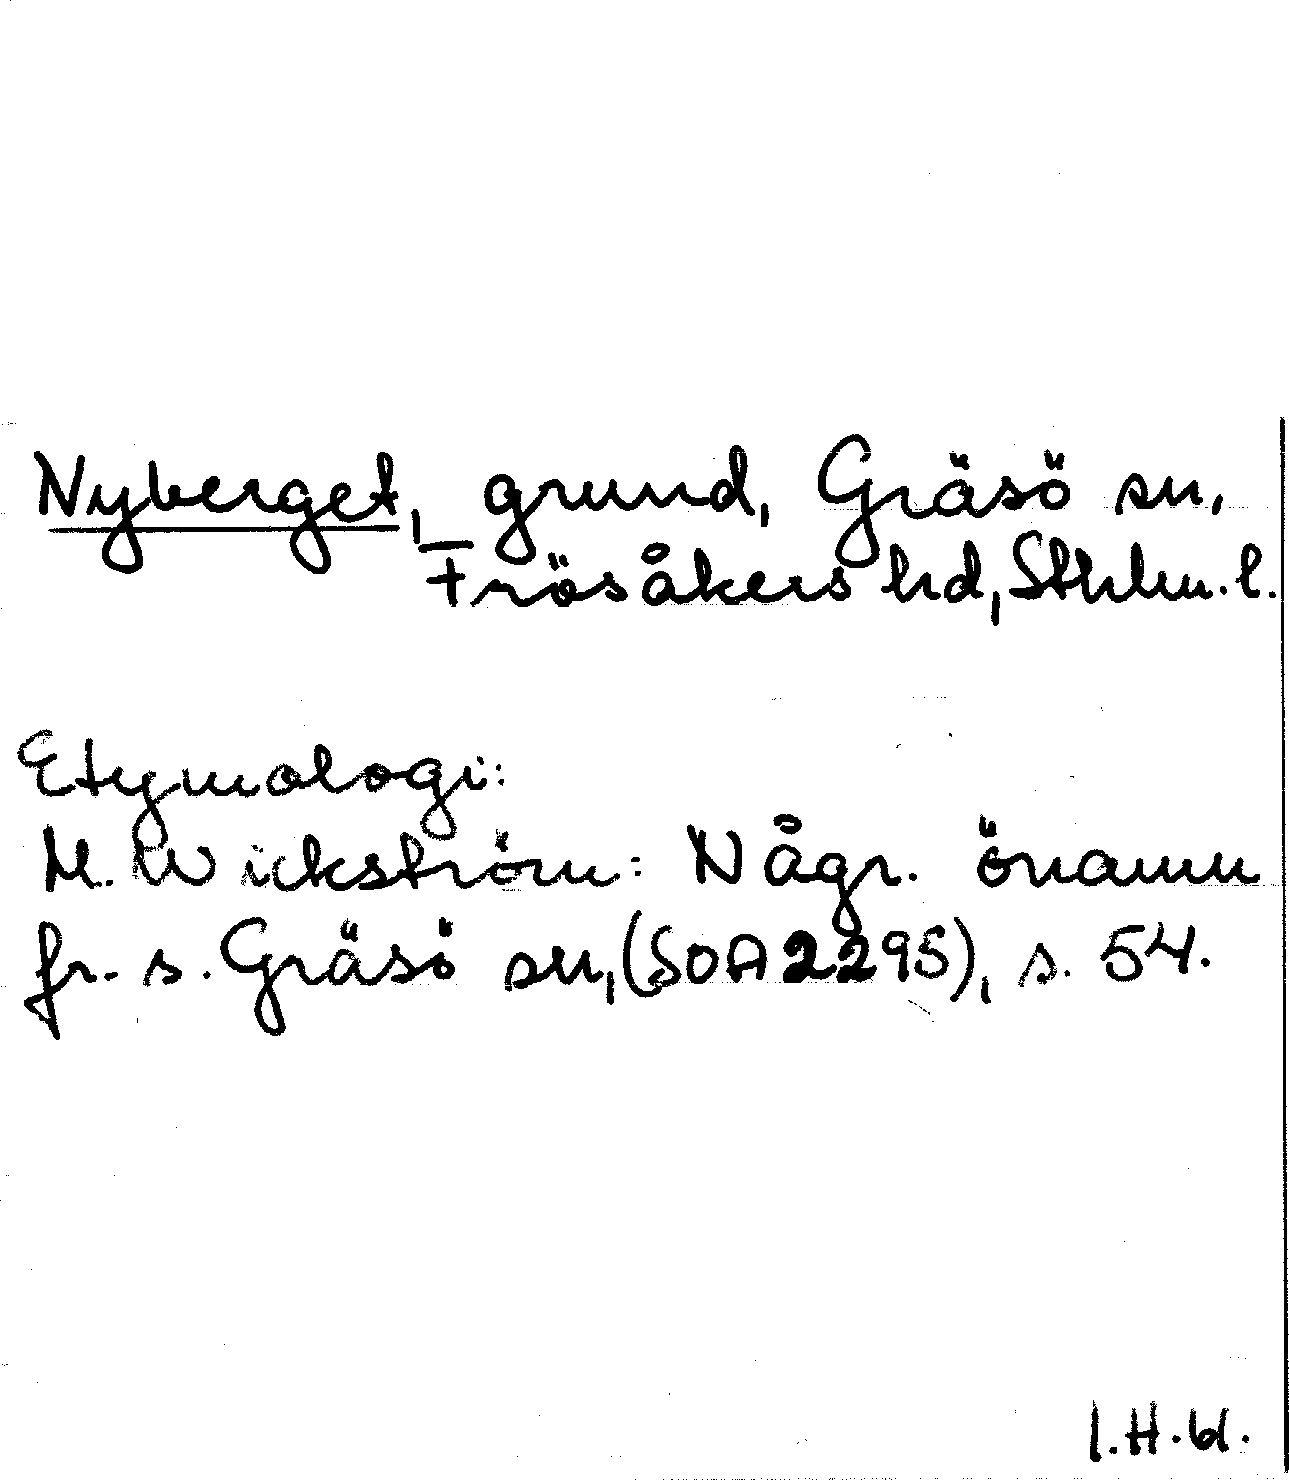 Nyberget, grund, Gräsö sn,
Frösåkers hd, Sthlm. l.
Etymologi:
M. Wickström: Någr. önamn
fr. s. Gräsö sn, (SOA 2295), s. 54.
I.H.61.